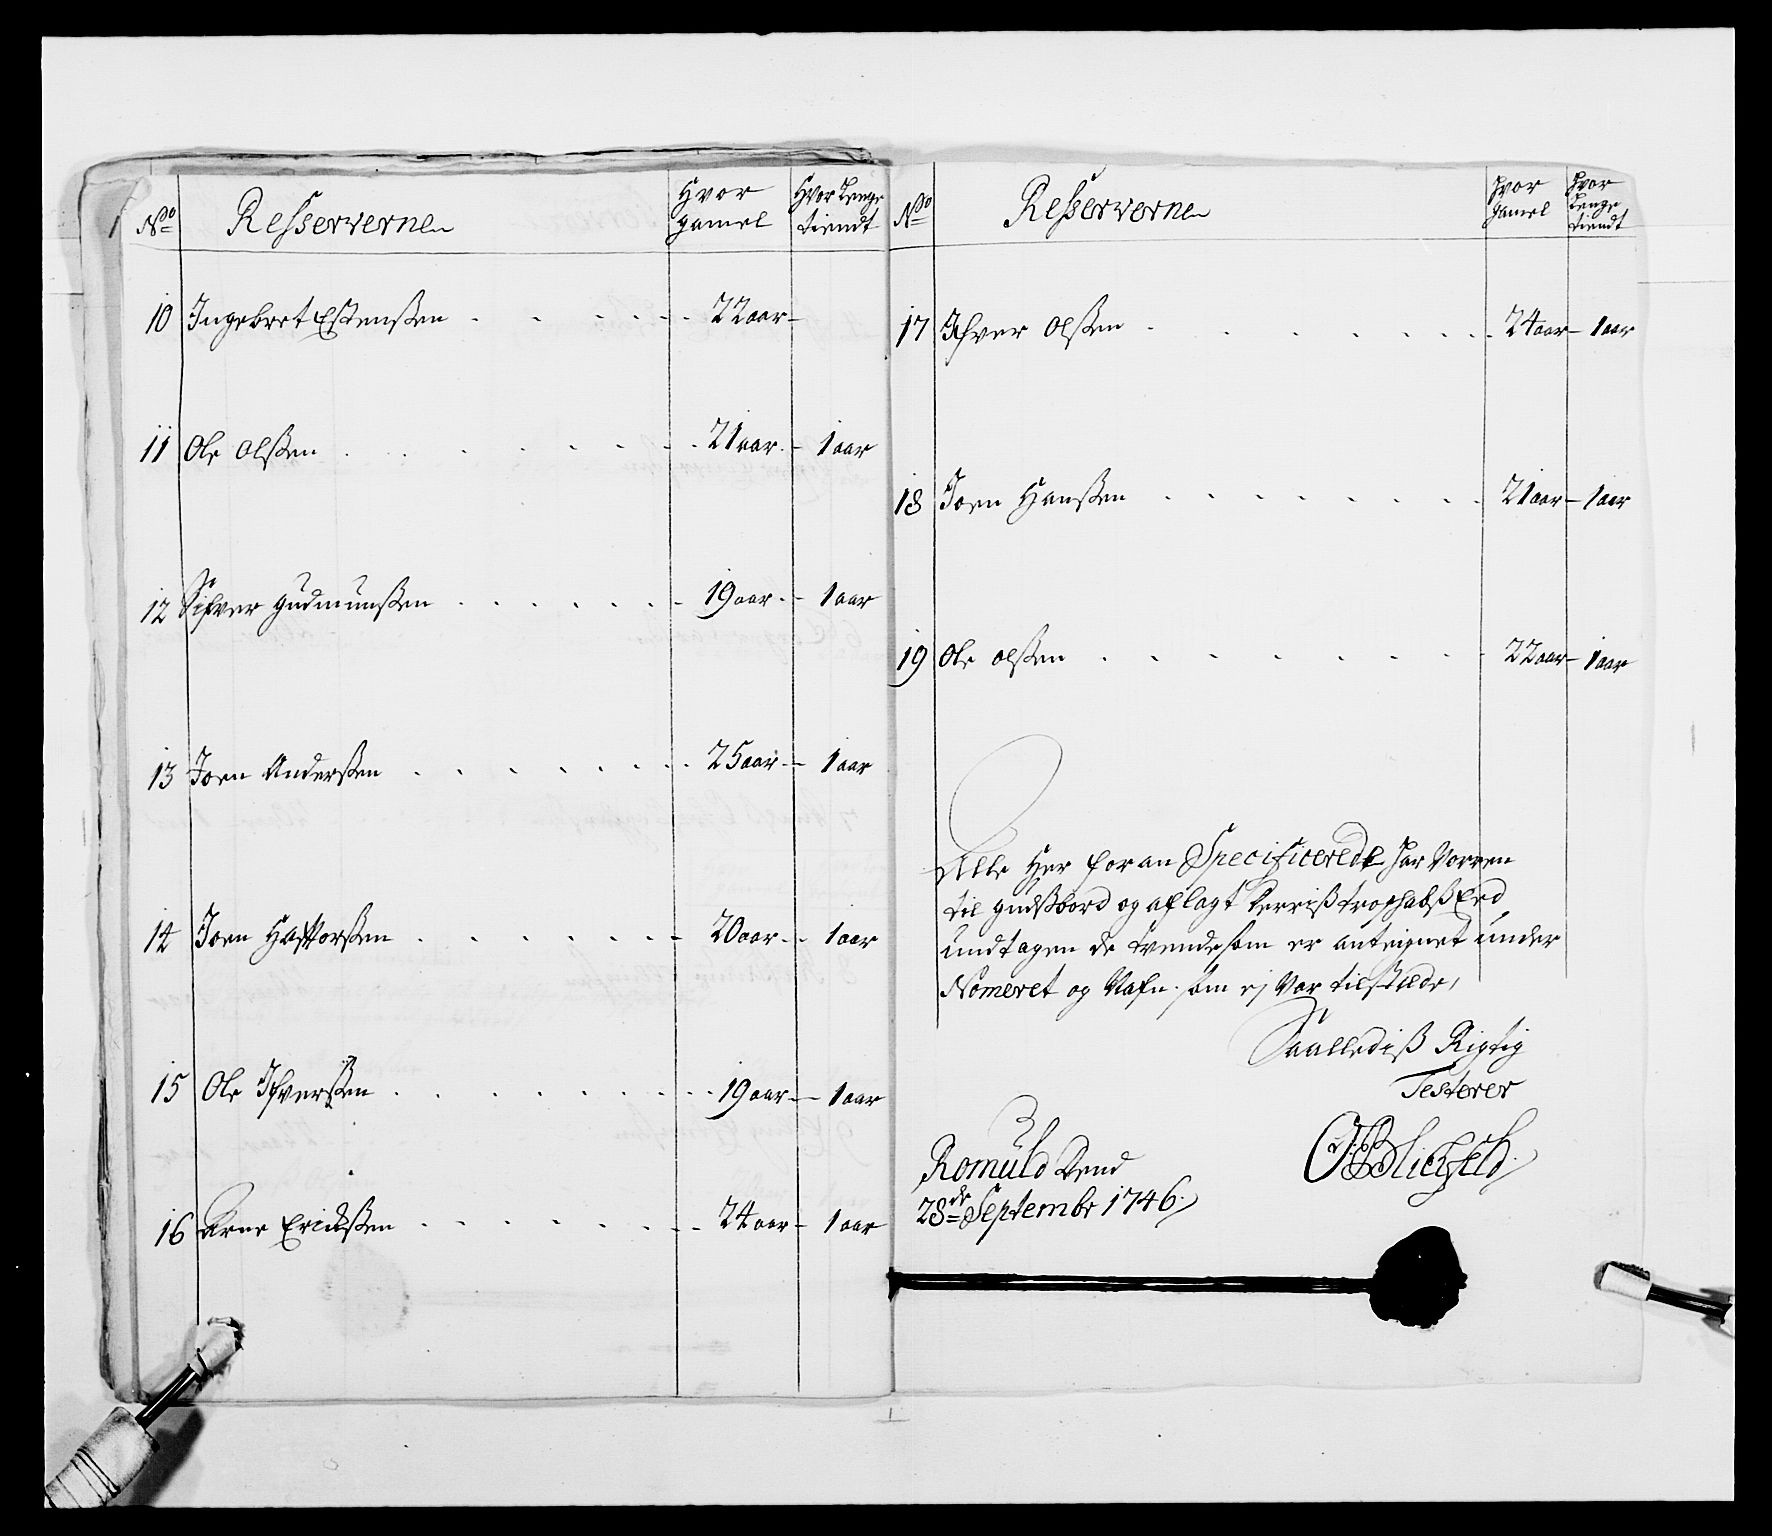 No Resserverne Hvor gamel Hvor Lenge tiendt
10 Ingebret Estensßen 22 aar
11 Ole Olsßen 21 aar 1 aar
12 Sifver Gudmunsßen 19 aar 1 aar
13 Joen Andersßen 25 aar 1 aar
14 Joen Haftorsßen 20 aar 1 aar
15 Ole Ifversßen 19 aar 1 aar
16 Arne Ericksßen 24 aar 1 aar
No Resserverne Hvor gamel Hvor Lenge tiendt
17 Ifver Olsßen 24 aar 1 aar
18 Joen Hansßen 21 aar 1 aar
19 Ole Olsßen 22 aar 1 aar
Alle Her foran Specificerede har Vorren
til gudsbord og aflagt Eed
undtagen de tvende som er anteignet under
Nomeret og Nafn som ej Var tilstede,
Saallediß Rigtig
Testerer
Romuld Dend
28de Septembr 1746
Blichfeld